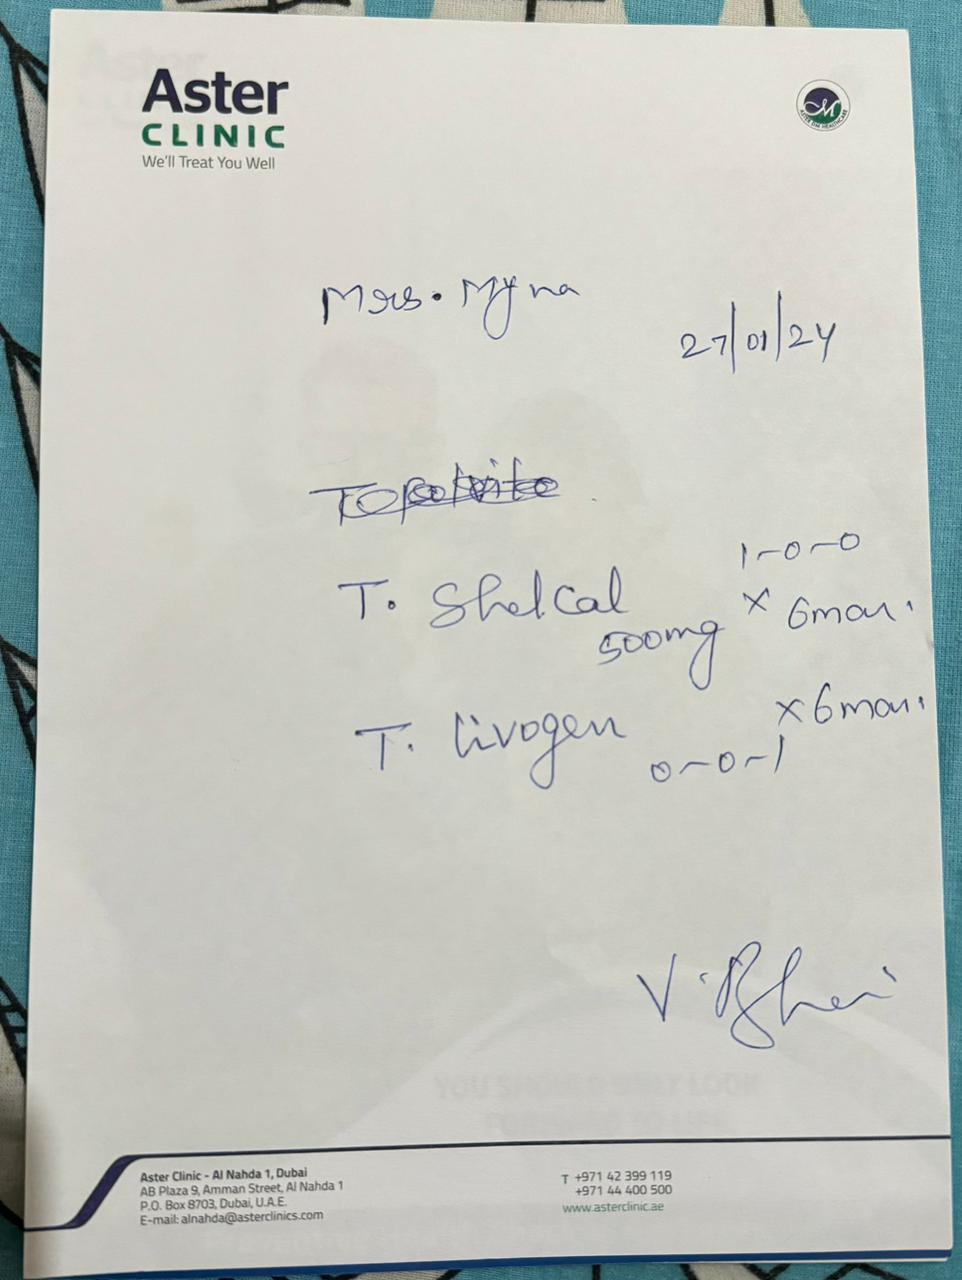 Aster
CLINIC
We'll Treat You Well
M
ASTER DM HEALTHCARE
Mrs. Myna
27/01/24
T. Shelcal 500mg
1-0-0
x 6mon.
T. livogen
x 6mon.
0-0-1
Aster Clinic - Al Nahda 1, Dubai
AB Plaza 9, Amman Street, Al Nahda 1
P.O. Box 8703, Dubai, U.A.E.
E-mail: alnahda@asterclinics.com
T +971 42 399 119
+971 44 400 500
www.asterclinic.ae